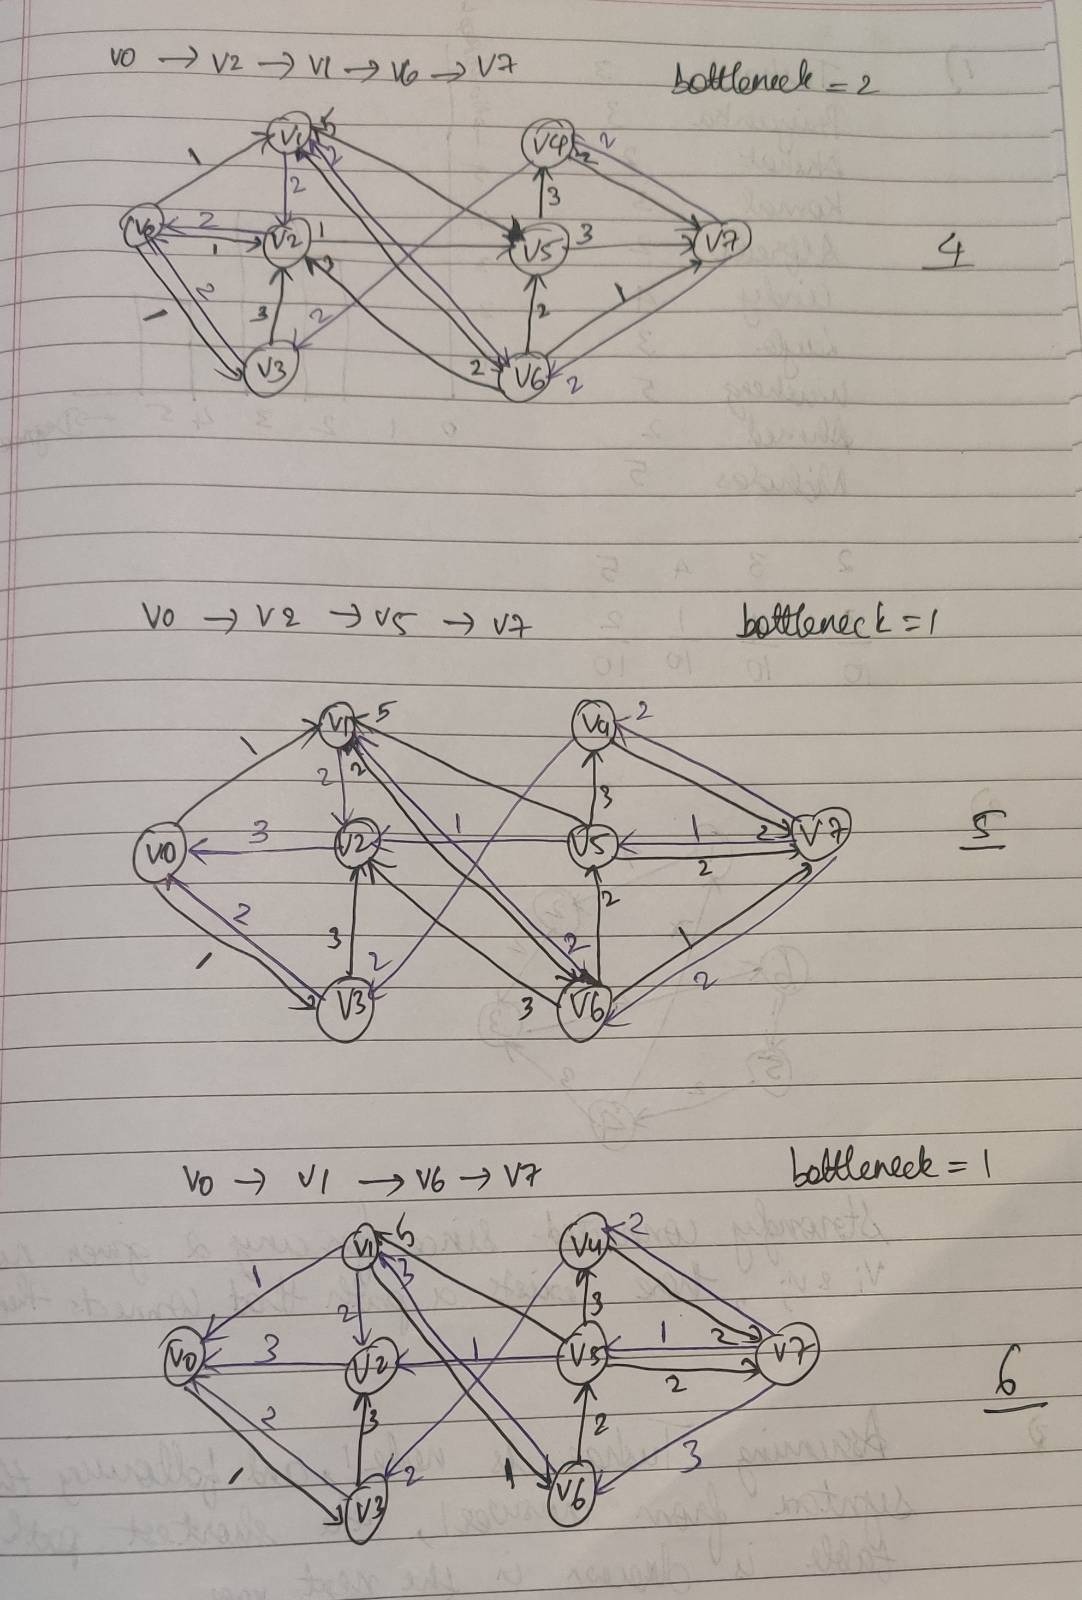 V0 → V2 → V1 → V6 → V7 bottleneck = 2
V1 5 V4 2
1 2 2 2
V0 2 V2 1 V5 3 V7 4
1 3
2 3 2 1
1 V3 2 2 V6 2
V0 → V2 → V5 → V7 bottleneck = 1
V1 5 V4 2
1 2 2 3
V0 3 V2 1 V5 1 2 V7 5
2
2 3 2 2 2 1
1 V3 3 V6 2
V0 → V1 → V6 → V7 bottleneck = 1
V1 6 V4 2
1 3
2 3
V0 3 V2 1 V5 1 2 V7 6
2
2 3 2
1 V3 2 1 V6 3